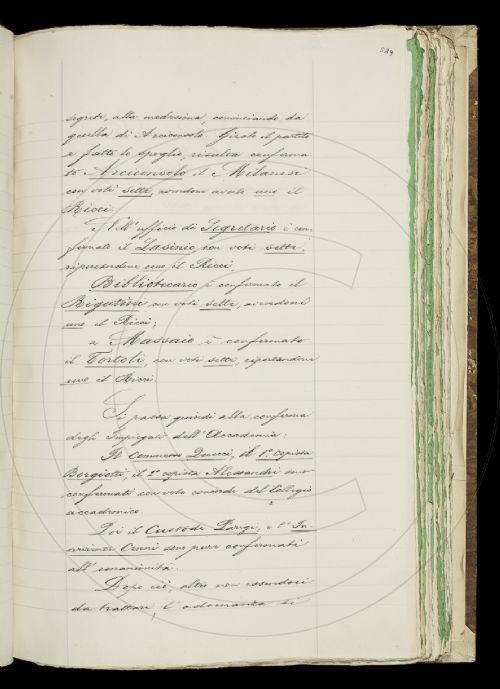 539
segreti, alla medesima, cominciando da
quella di Arciconsolo. Girato il partito
e fatto lo spoglio, risulta conferma
to Arciconsolo il Milanesi
con voti sette, avendone avuto uno il
Ricci.
All'ufficio di Segretario è con
fermato il Lasinio con voti sette,
riportandone uno il Ricci.
Bibliotecario è confermato il
Rigutini con voti sette, avendone
uno il Ricci;
a Massaio, è confermato
il Tortoli, con voti sette, riportandone
uno il Ricci.
Si passa quindi alla conferma
degli Impiegati dell'Accademia:
Il Commesso il 1º. copista
il 2º copista Alessandri sono
confermati con voto concorde del Collegio
accademico.
Poi il Custode Parigi, e l'In-
serviente Cenni sono pure confermati
all'unanimità.
Dopo ciò, altro non essendovi
da trattare, l'adunanza si